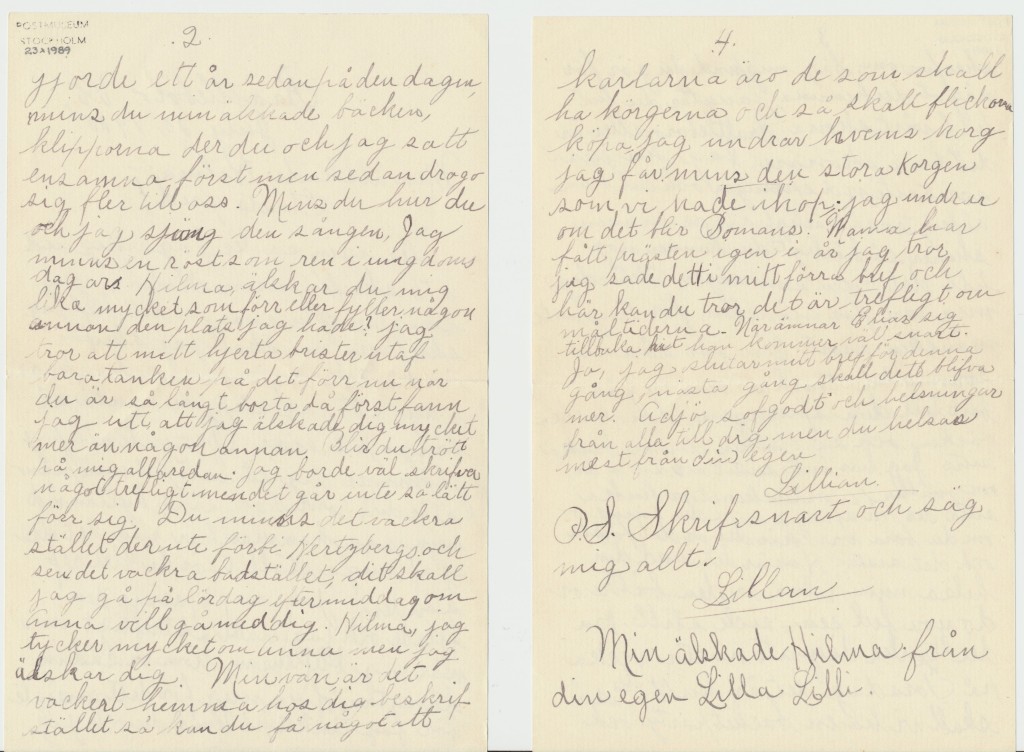 POSTMUSEUM
STOCKHOLM
23 A 1989
. 2.
gjorde ett år sedan på den dagen,
mins du min älskade bäcken,
klipporna der du och jag satt
ensamna först men sedan drogo
sig fler till oss. Mins du hur du
och jag sjöng den sången, Jag
minns en röst som ren i ungdoms
dagars Hilma, älskar du mig
lika mycket som förr eller fyller någon
annan den plats jag hade? jag
tror att mitt hjerta brister utaf
bara tanken på det förr nu när
du är så långt borta då först fann
jag ut, att jag älskade dig mycket
mer än någon annan. Blir du trött
på mig allaredan. Jag borde väl skrifva
något trefligt men det går inte så lätt
förr sig. Du minns det vackra
stället der ute förbi Hertzbergs, och
sen det vackra badstället, dit skall
jag gå på lördag efter middag om
Anna vill gå med dig. Hilma, jag
tycker mycket om Anna men jag
älskar dig. Min vän är det
vackert hemma hos dig beskrif
stället så kan du få något att
.4.
karlarna äro de som skall
ha körgerna och så skall flickorna
köpa, jag undrar hvems korg
jag får. mins den stora Korgen
som vi hade ihop; jag undrar
om det blir Bomans. Mamma har
fått prästen igen i år jag tror
jag sade dett i mitt förra bref och
här kan du tror det är trefligt om
måltiderna. När ämnar Elias sig
tillbaka hit han kommer väl snart.
Ja, jag slutar mitt bref för denna
gång, nästa gång skall dett blifva
mer. Adjö, sof godt och helsningar
från alla till dig men du helsas
mest från din egen
Lillian.
P.S. Skrif snart och säg
mig allt.
Lillan
Min älskade Hilma från
din egen Lilla Lilli.